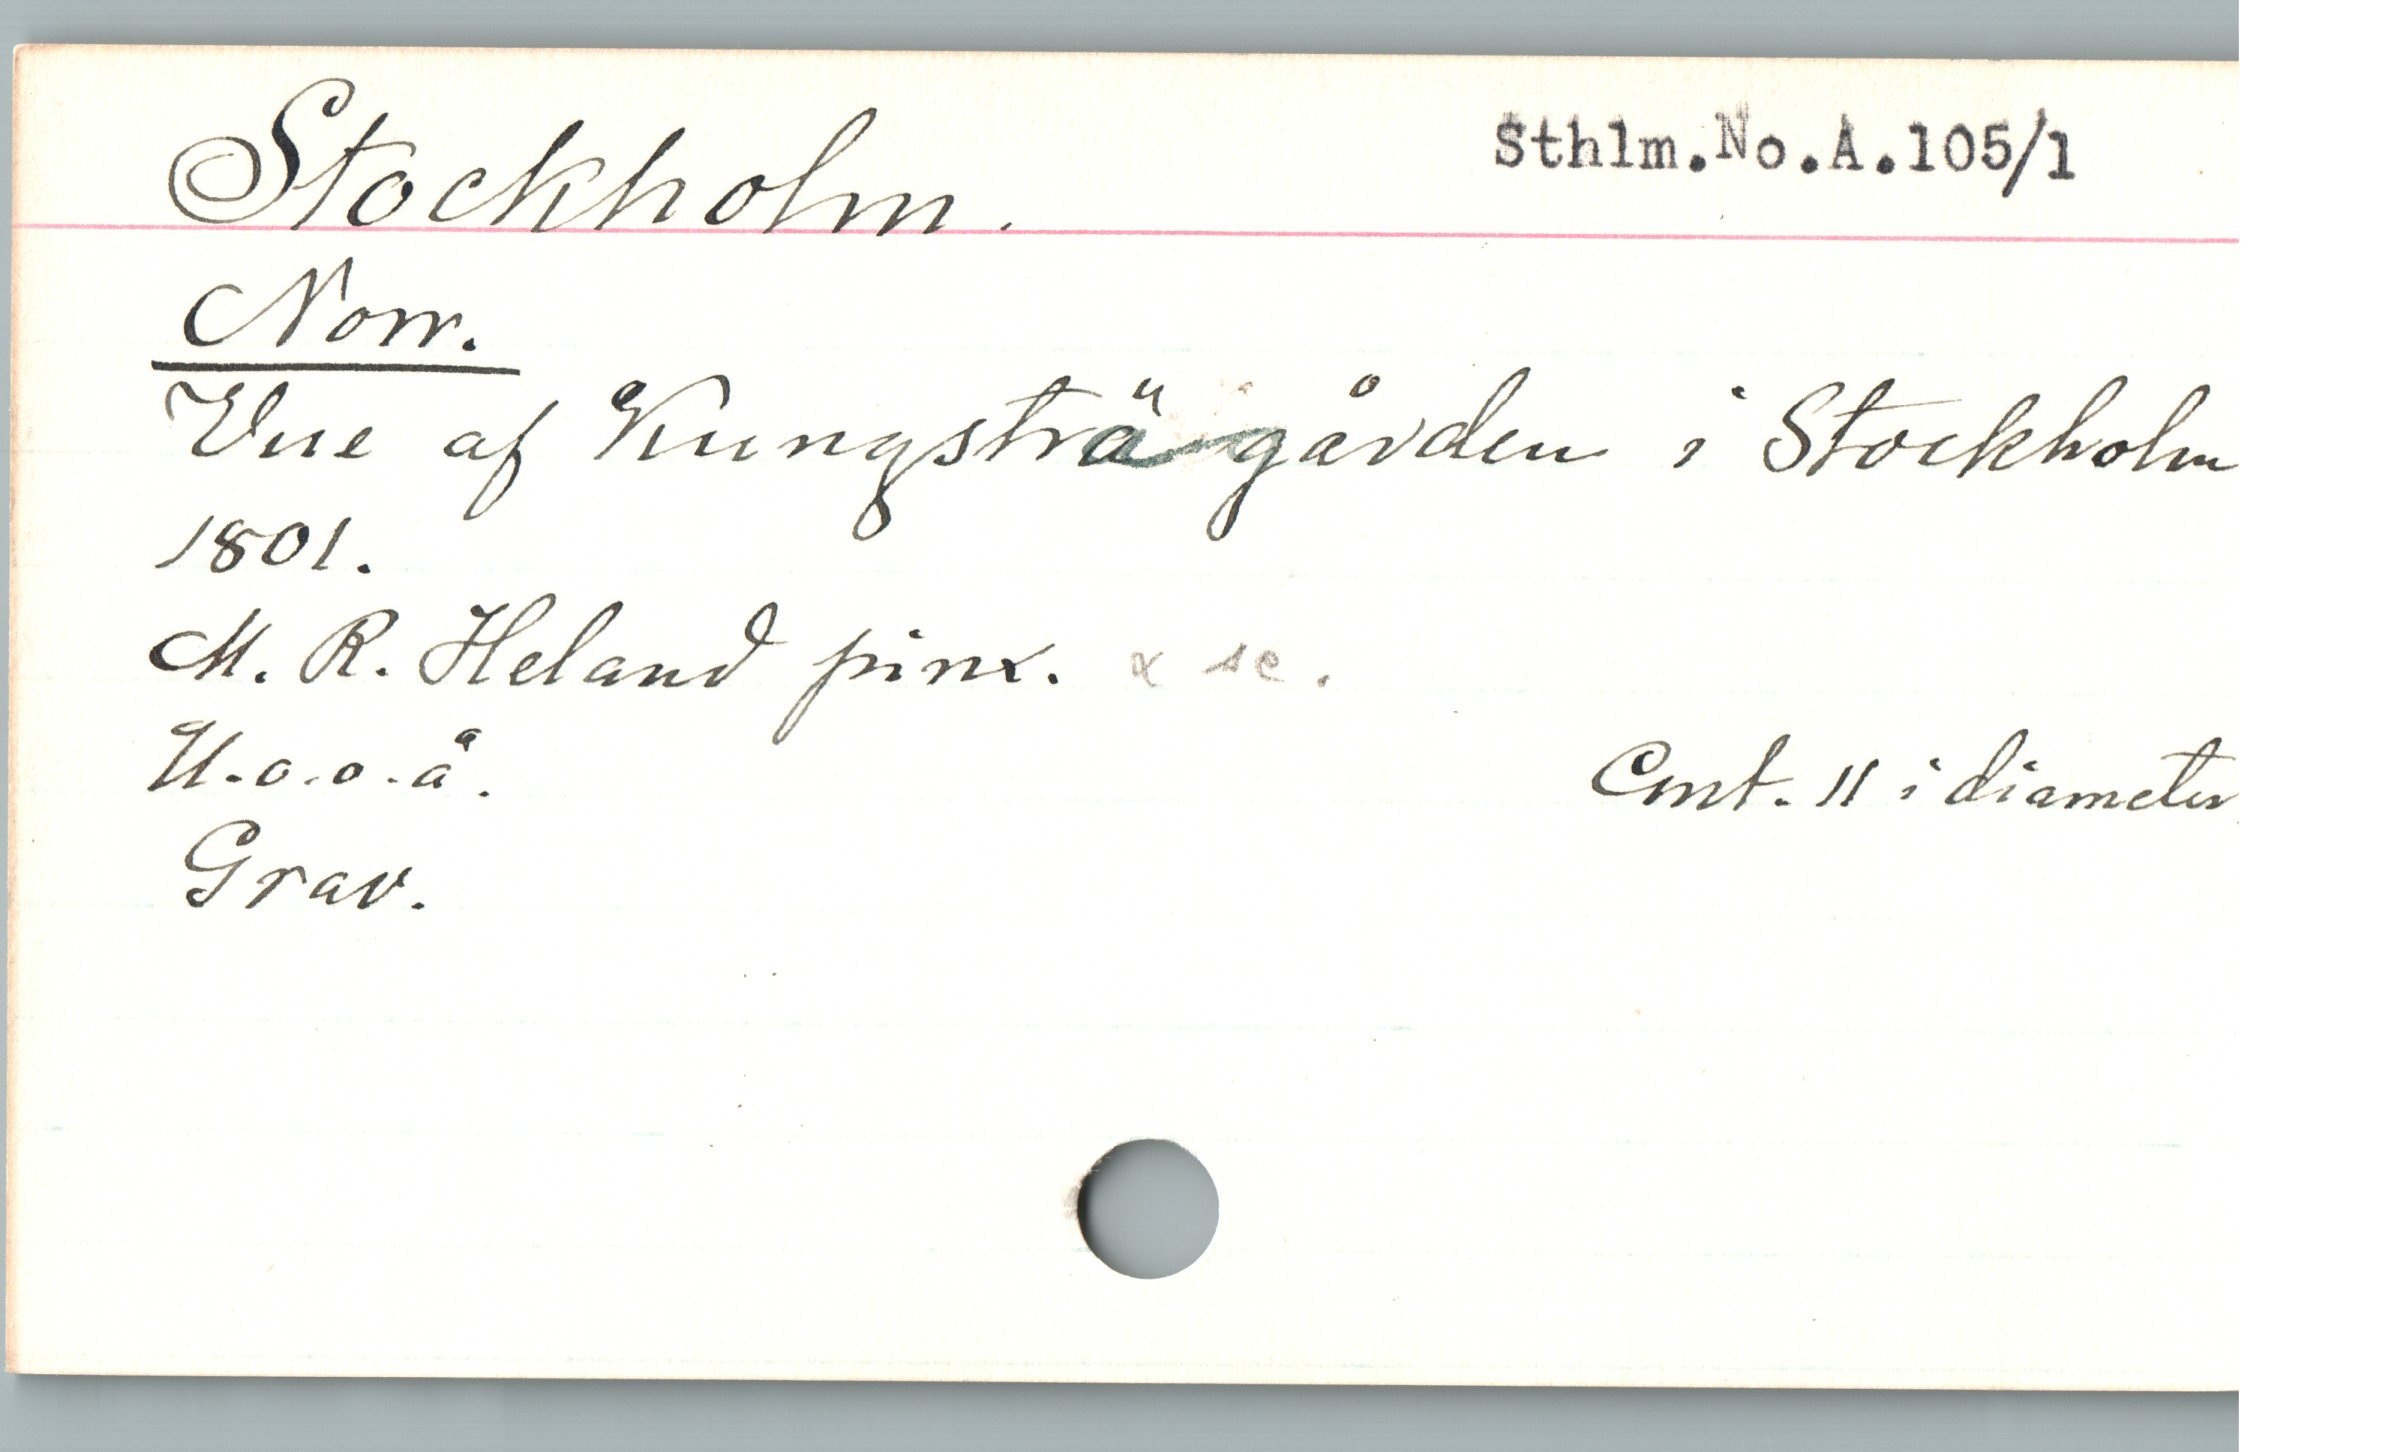 Stockholm.
Sthlm.No.A.105/1
Norr.
Vue af Kungsträgården i Stockholm
1801.
M. R. Heland pinx. & sc.
U.o.o.å.
Cmt. 11 i diameter
Grav.